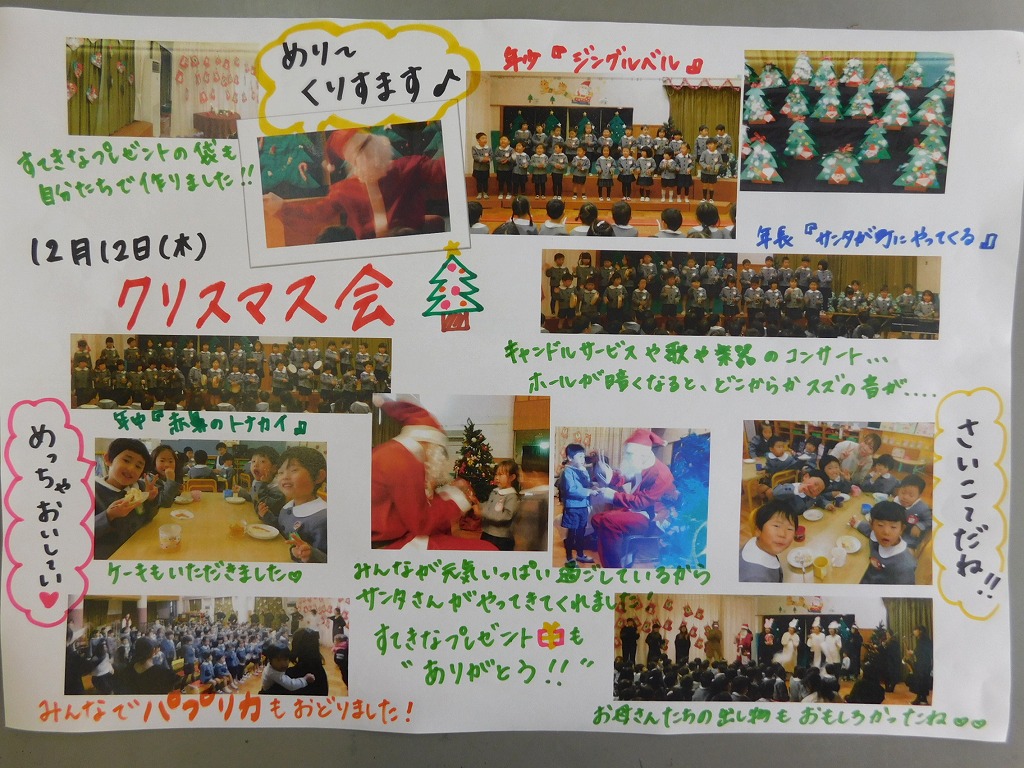 めり～
くりすます♪
すてきなプレゼントの袋も
自分たちで作りました!!
年少『ジングルベル』
12月12日(木)
クリスマス会
年長『サンタが町にやってくる』
キャンドルサービスや歌や楽器のコンサート...
ホールが暗くなると、どこからかスズの音が....
年中『赤鼻のトナカイ』
めっちゃおいしてい♥
さいこてだね!!
ケーキもいただきました♡
みんなが元気いっぱい過ごしているから
サンタさんがやってきてくれました!
すてきなプレゼントも
"ありがとう!!"
みんなでパプリカもおどりました!
お母さんたちの出し物もおもしろかったね♡♡